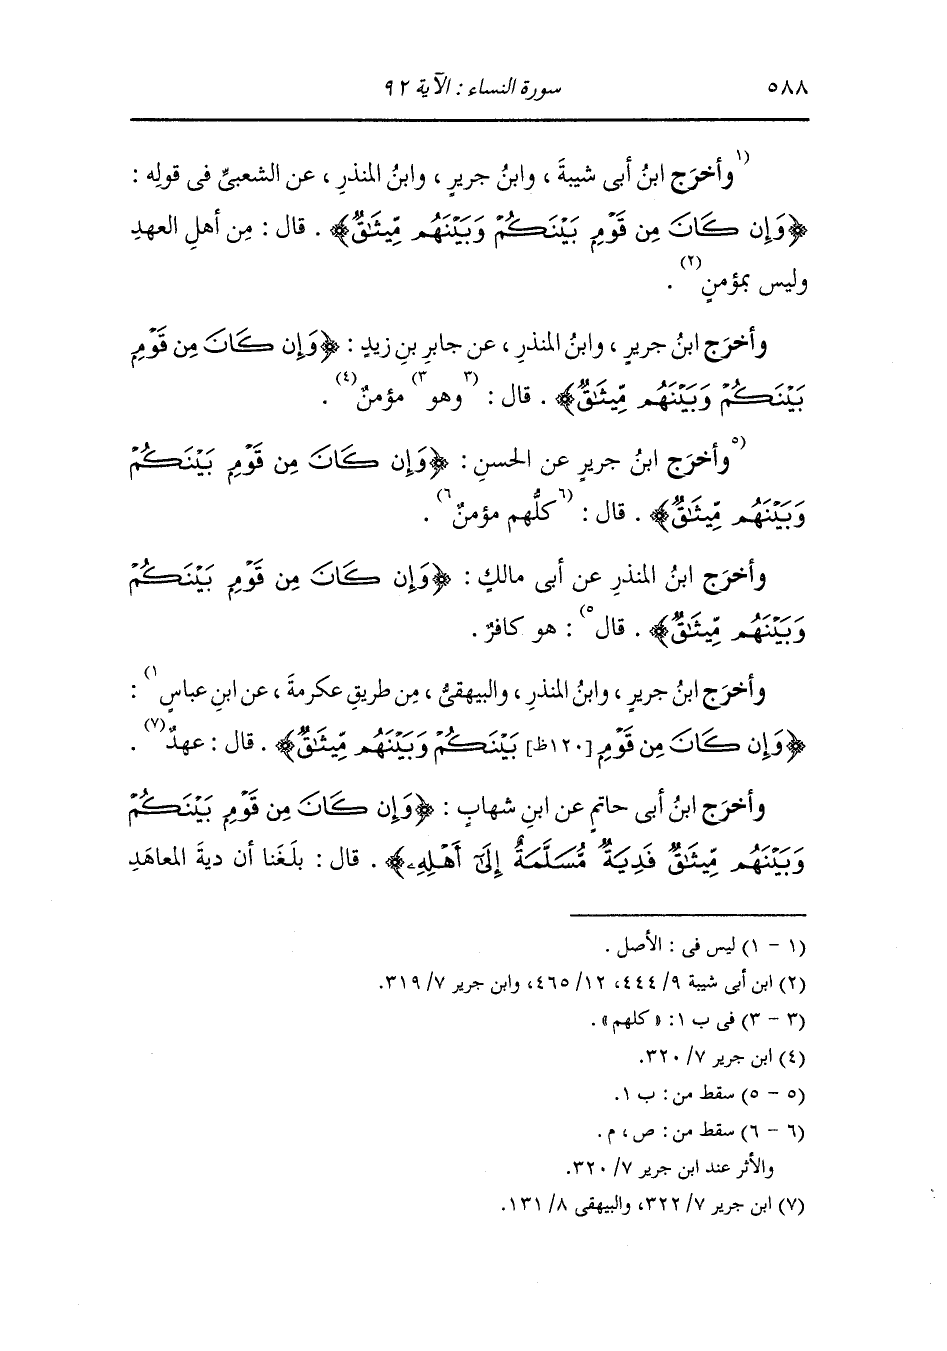 ٥٨٨ سورة النساء : الآية ٩٢
(١) وأخرَج ابنُ أبى شيبةَ ، وابنُ جريرٍ ، وابنُ المنذرِ ، عن الشعبىِّ فى قولِه :
﴿وَإِن كَانَ مِن قَوْمِۭ بَيْنَكُمْ وَبَيْنَهُم مِّيثَٰقٌ﴾ . قال : مِن أهلِ العهدِ
وليس بمؤمنٍ(٢) .
وأخرَج ابنُ جريرٍ ، وابنُ المنذرِ ، عن جابرِ بنِ زيدٍ : ﴿وَإِن كَانَ مِن قَوْمِۭ
بَيْنَكُمْ وَبَيْنَهُم مِّيثَٰقٌ﴾ . قال : (٣) وهو (٣) مؤمنٌ(٤) .
(٥) وأخرَج ابنُ جريرٍ عن الحسنِ : ﴿وَإِن كَانَ مِن قَوْمِۭ بَيْنَكُمْ
وَبَيْنَهُم مِّيثَٰقٌ﴾ . قال : (٦) كلُّهم مؤمنٌ (٦) .
وأخرَج ابنُ المنذرِ عن أبى مالكٍ : ﴿وَإِن كَانَ مِن قَوْمِۭ بَيْنَكُمْ
وَبَيْنَهُم مِّيثَٰقٌ﴾ . قال (٥) : هو كافرٌ .
وأخرَج ابنُ جريرٍ ، وابنُ المنذرِ ، والبيهقىُّ ، مِن طريقِ عكرمةَ ، عن ابنِ عباسٍ (١) :
﴿وَإِن كَانَ مِن قَوْمِۭ [١٢٠ظ] بَيْنَكُمْ وَبَيْنَهُم مِّيثَٰقٌ﴾ . قال : عهدٌ(٧) .
وأخرَج ابنُ أبى حاتمٍ عن ابنِ شهابٍ : ﴿وَإِن كَانَ مِن قَوْمِۭ بَيْنَكُمْ
وَبَيْنَهُم مِّيثَٰقٌ فَدِيَةٌ مُّسَلَّمَةٌ إِلَىٰٓ أَهْلِهِۦ﴾ . قال : بلَغنا أن ديةَ المعاهَدِ
(١ - ١) ليس فى : الأصل .
(٢) ابن أبى شيبة ٩/ ٤٤٤، ١٢/ ٤٦٥، وابن جرير ٧/ ٣١٩.
(٣ - ٣) فى ب ١: « كلهم » .
(٤) ابن جرير ٧/ ٣٢٠.
(٥ - ٥) سقط من : ب ١.
(٦ - ٦) سقط من : ص ، م .
والأثر عند ابن جرير ٧/ ٣٢٠.
(٧) ابن جرير ٧/ ٣٢٢، والبيهقى ٨/ ١٣١.